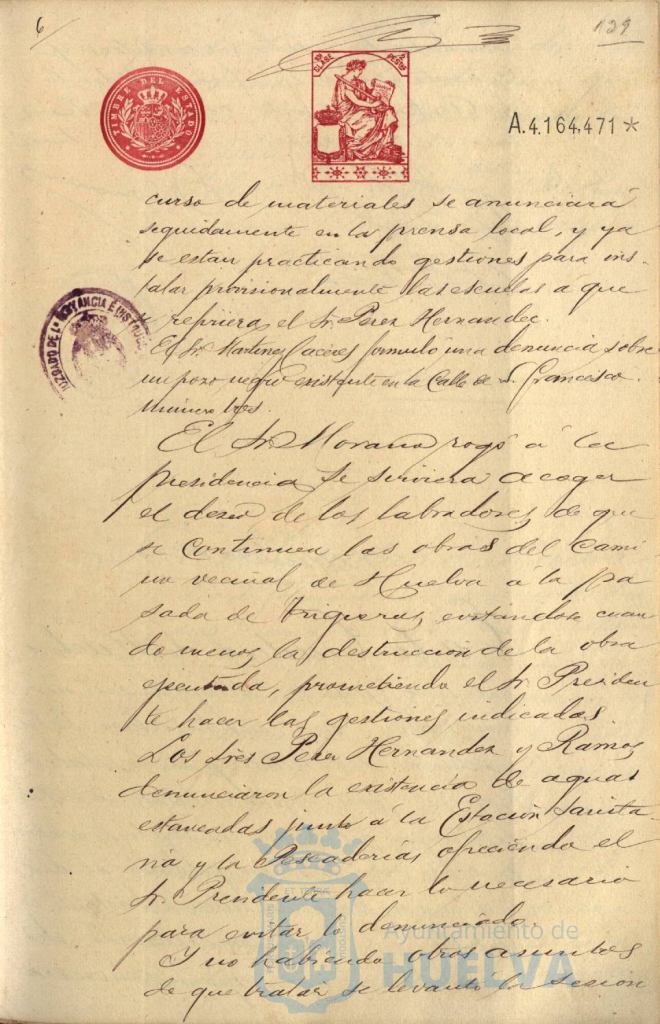 6
129
TIMBRE DEL ESTADO
CLASE
A.4.164.471*
curso de materiales se anunciará
seguidamente en la prensa local, y ya
se estan practicando gestiones para ins-
talar provisionalmente las escuelas á que
se refiriera el Sr. Perez Hernandez.
JUZGADO DE 1ª INSTANCIA É INSTRUCCION
El Sr. Martinez Caceres formuló una denuncia sobre
un pozo negro existente en la Calle de S. Francisco
número tres.
El Sr. Morano rogó á la
presidencia se sirviera acoger
el deseo de los labradores de que
se continuen las obras del cami
no vecinal de Huelva á la pa
sada de Trigueros, evitandose cuan
do menos la destruccion de la obra
ejecutada, prometiendo el Sr. Presiden
te hacer las gestiones indicadas.
Los Sres Perez Hernandez y Ramos
denunciaron la existencia de aguas
estancadas junto á la Estación Sanita-
ria y la Pescaderias ofreciendo el
Sr. Presidente hacer lo necesario
para evitar lo denunciado.
Y no habiendo otros asuntos
de que tratar se levantó la sesión
Ayuntamiento de
HUELVA